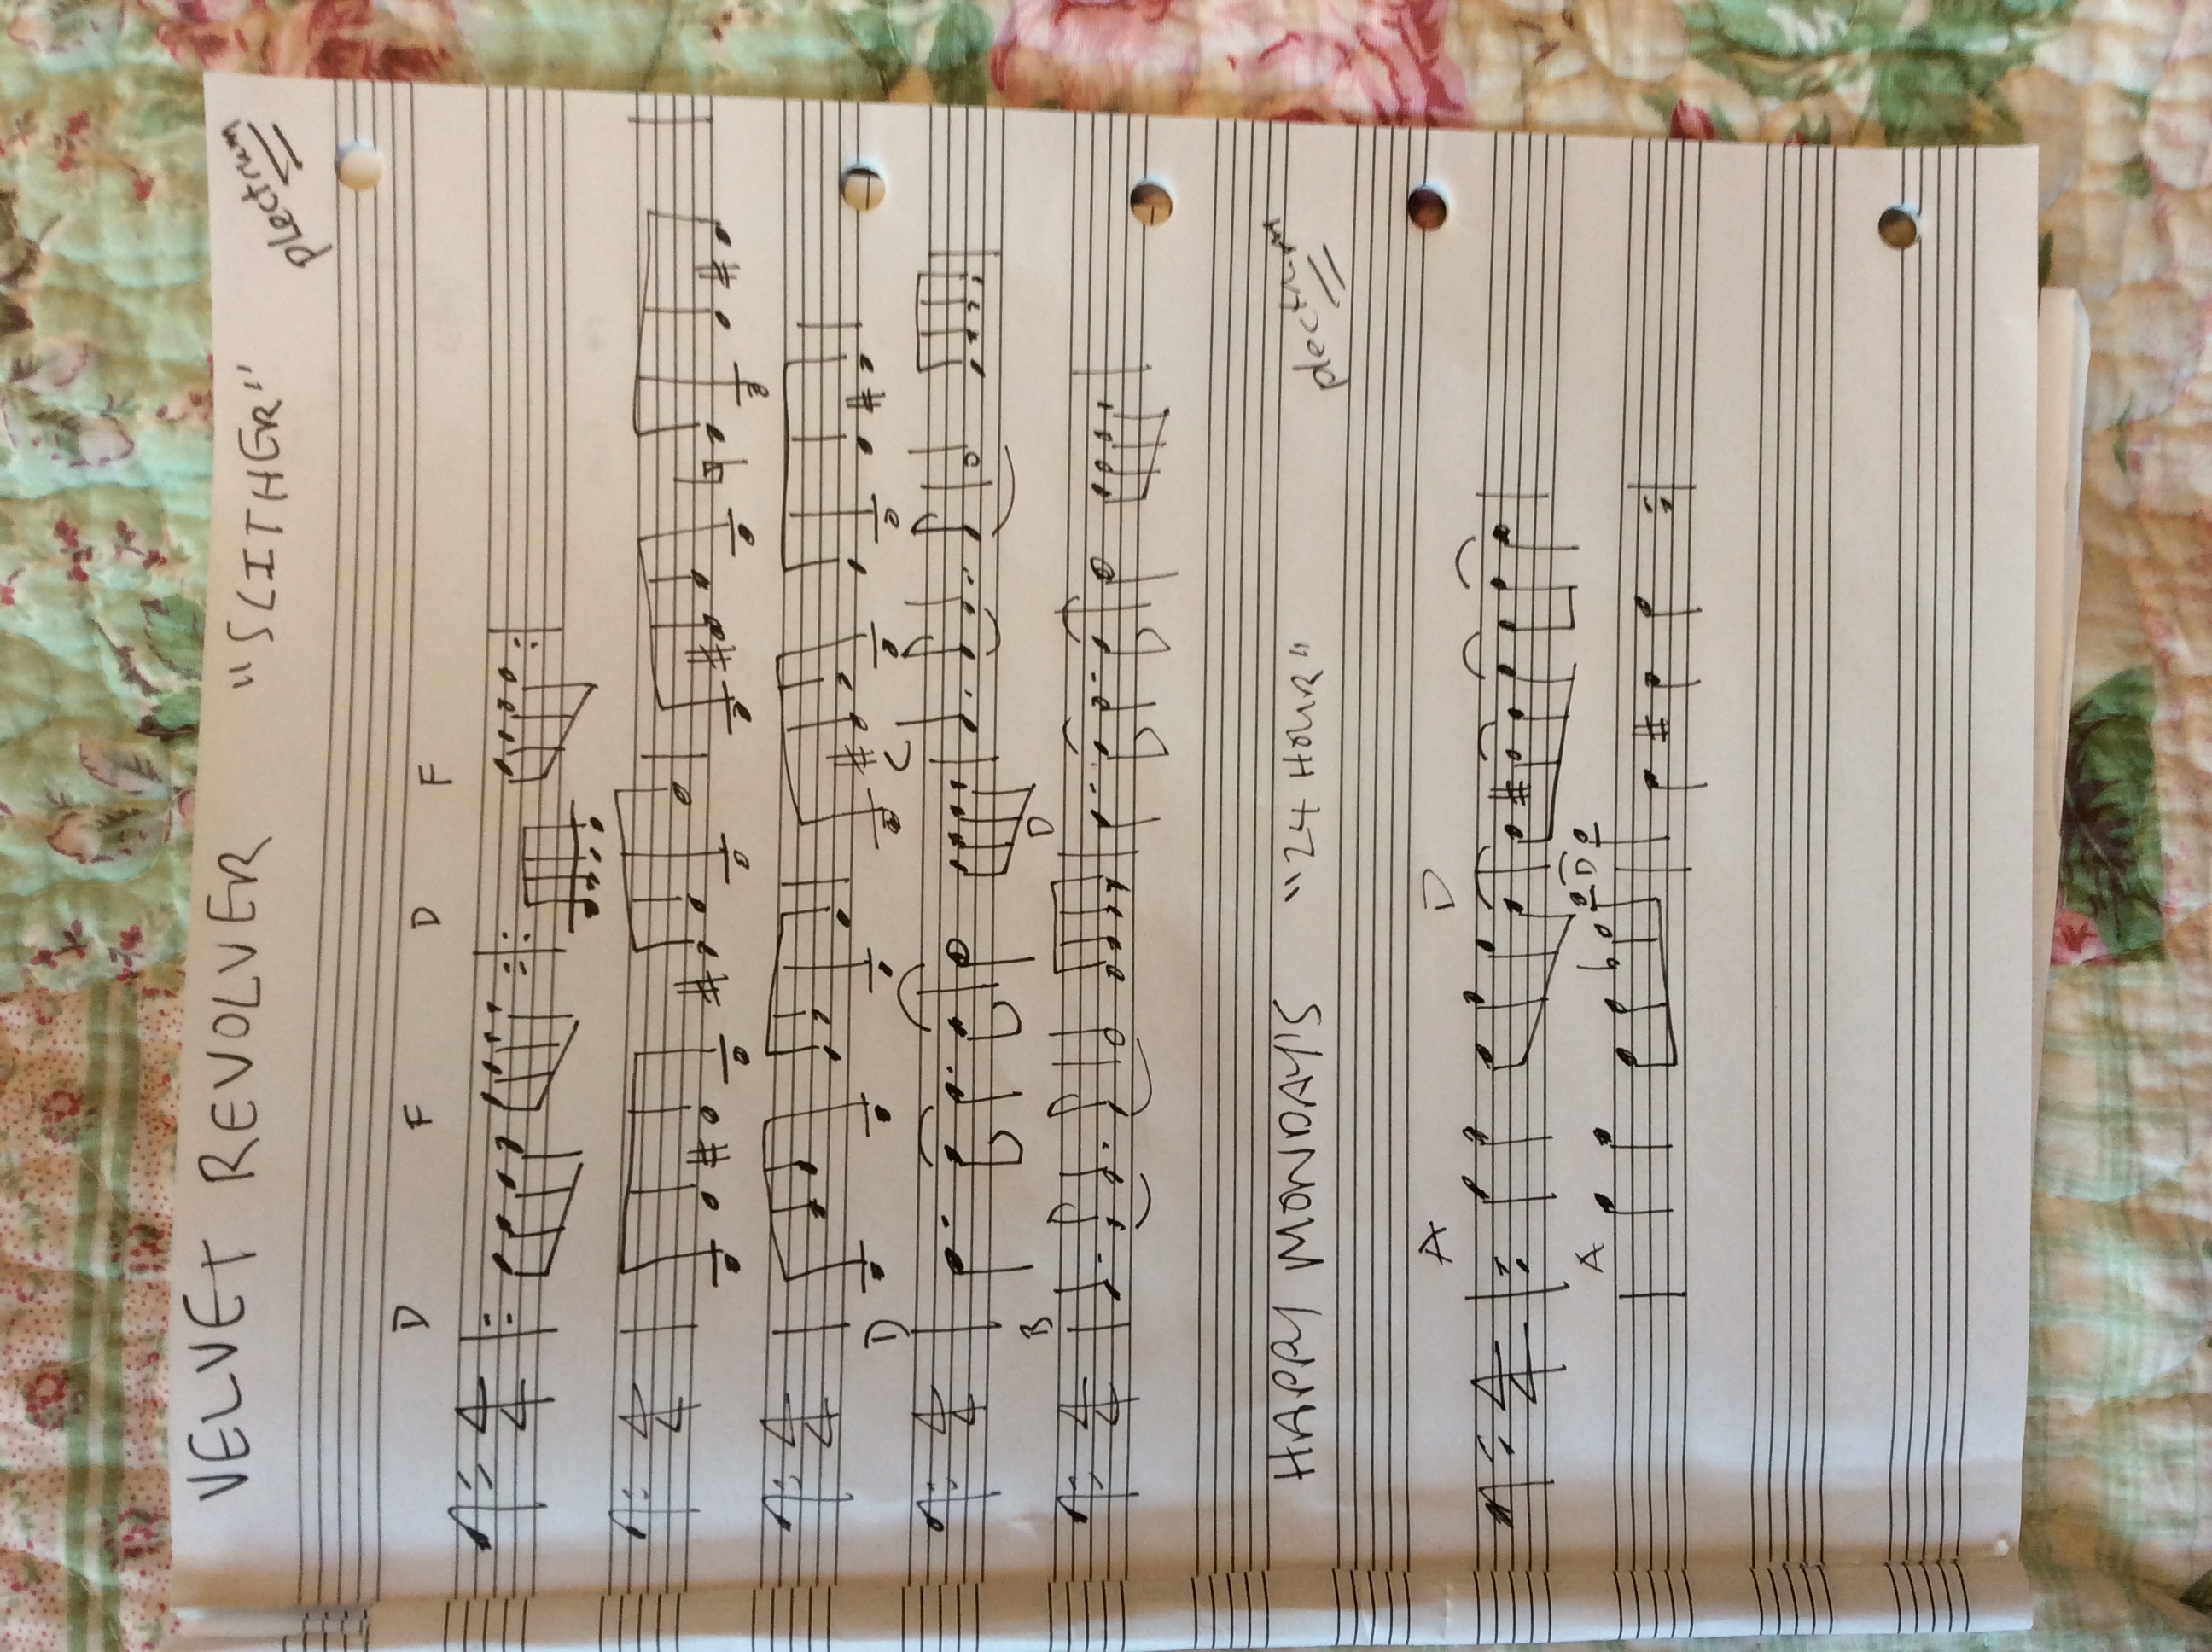 VELVET REVOLVER "SLITHER" plectrum
D F D F
4/4
4/4
4/4
D C
4/4
B D
4/4
HAPPY MONDAY'S "24 HOUR" plectrum
A D
4/4
A D